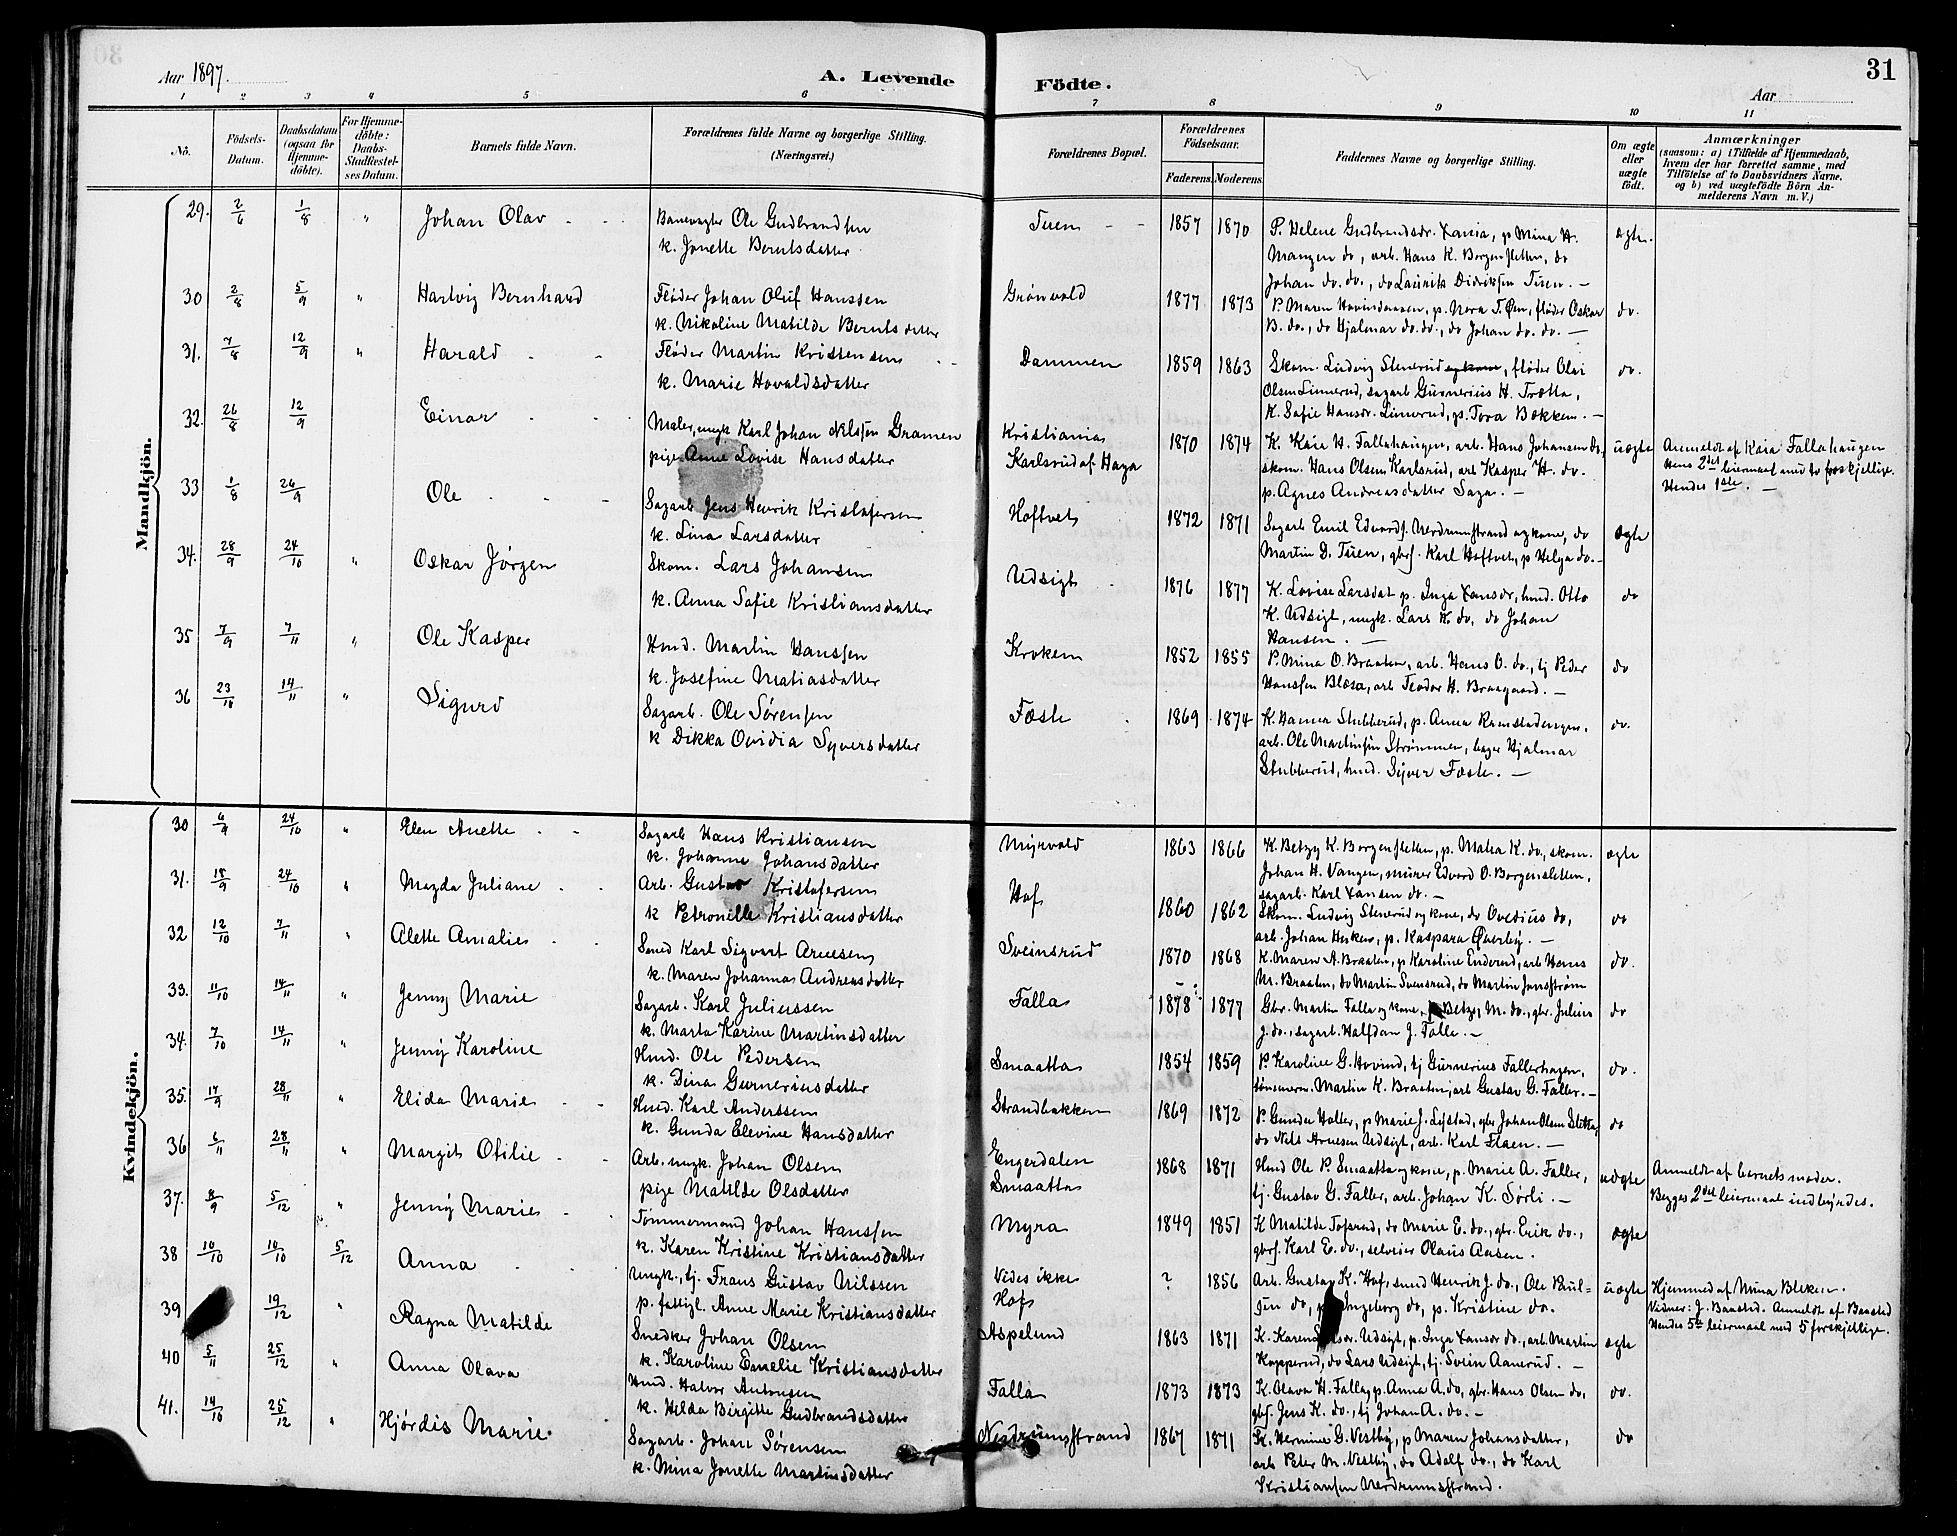 Aar 1897.
A. Levende
1 2 3 4 5 6
Nô.
Födsels-Datum.
Daabsdatum (ogsaa for Hjemme-döbte).
For Hjemme-döbte: Daabs-Stadfæstel-ses Datum.
Barnets fulde Navn.
Forældrenes fulde Navne og borgerlige Stilling. (Næringsvei.)
Mandkjön.
29. 2/6 1/8 " Johan Olav
Banevogter Ole Gudbrandsen
k. Jonette Berntsdatter
30 2/8 5/9 " Hartvig Bernhard
Fløder Johan Oluf Hanssen
k. Nikoline Matilde Berntsdatter
31. 7/8 12/9 " Harald
Fløder Martin Kristensen
k. Marie Hovaldsdatter
32. 26/8 12/9 Einar
Maler, ungk Karl Johan Nilssen Gramen
pige Anne Lovise Hansdatter
33 1/8 26/9 Ole
Sagarb Jens Henrik Kristofersen
k. Lina Larsdatter
34. 28/9 24/10 " Oskar Jørgen
Skom. Lars Johansen
k. Anna Sofie Kristiansdatter
35 7/9 7/11 " Ole Kasper
Hmd. Martin Hanssen
k. Josefine Matiasdatter
36 23/10 14/11 " Sigurd
Sagarb. Ole Sørensen
k Dikka Ovidia Syversdatter
Kvindekjön.
30 6/9 24/10 " Elen Anette
Sagarb Hans Kristiansen
k. Johanne Johansdatter
31. 18/9 24/10 " Magda Juliane
Arb. Gustav Kristofersen
k Petronille Kristiansdatter
32 12/10 7/11 " Alette Amalie
Smed Karl Sigvart Arnesen
k. Maren Johanna Andreasdatter
33. 11/10 14/11 " Jenny Marie
Sagarb. Karl Juliussen
k. Marta Karine Martinsdatter
34. 7/10 14/11 " Jenny Karoline
Hmd. Ole Pedersen
k. Dina Gunneriusdatter
35. 17/9 28/11 " Elida Marie
Hmd. Karl Anderssen
k. Gunda Elevine Hansdatter
36 6/11 28/11 " Margit Otilie
Arb. ungk. Johan Olsen
pige Matilde Olsdatter
37. 8/9 5/12 " Jenny Marie
Tømmermand Johan Hanssen
k. Karen Kristine Kristiansdatter
38 10/10 10/10 5/12 Anna
Ungk., tj. Frans Gustav Nilssen
p. fattigl. Anne Marie Kristiansdatter
39 19/12 " Ragna Matilde
Snedker Johan Olsen
k. Karoline Emelie Kristiansdatter
40 5/11 25/12 " Anna Olava
Hmd. Halvor Antonsen
k. Hilda Birgitte Gudbrandsdatter
41. 14/10 25/12 " Hjørdis Marie
Sagarb. Johan Sørensen
k. Mina Jonette Martinsdatter
Födte.
31
Aar
7 8 9 10 11
Forældrenes Bopæl.
Forældrenes Födselsaar.
Faderens. Moderens.
Faddernes Navne og borgerlige Stilling.
Om ægte eller uægte födt.
Anmærkninger
(saasom: a) i Tilfælde af Hjemmedaab,
hvem der har forrettet samme, med
Tilföielse af to Daabsvidners Navne,
og b) ved uægtefödte Börn An-
melderens Navn m. V.)
Tuen 1857 1870 P. Helene Gudbrandsdr. , p Mina H. ægte.
Mangen do, arb. Hans K. Borgensletten, do
Johan do. do., do Laurits Didriksen Tuen. —
Grønvold 1877 1873 P. Maren , p. Nora T. Øen, fløder Oskar do.
B. do., do Hjalmar do. do., do Johan do. do. —
Dammen 1859 1863 Skom. Ludvig Stenerud , fløder Olai do.
Olsen Linnerud, sagarb Gunnerius H. Trætta,
K. Sofie Hansdr. Linnerud, p. Tora Bakken. —
Kristiania 1870 1874 K. Kaia H. Fallahaugen, arb. Hans Johansen do, uægte Anmeldt af Kaia Fallahaugen
Karlsrud af Haga skom. Hans Olsen Karlsrud, arb Kasper H. do. Hans 2det leiermaal med to forskjellige.
p. Agnes Andreasdatter Saga. — Hendes 1ste. —
Hoftvet 1872 1871 Sagarb Emil Edvards. Nerdrumstrand og kone, do ægte
Martin D. Tuen, gbrs. Karl Hoftvet, p Helga do. —
Udsigt 1876 1877 K. Lovise Larsdat p. Inga Larsdr, hmd. Otto do
K. Udsigt, ungk. Lars K. do, do Johan
Hansen. —
Kroken 1852 1855 P. Mina O. Braaten, arb. Hans O. do., tj Peder do
Hanssen Blæsa, arb Teodor H. Braagaard. —
Fæste 1869 1874 K. Hanna Stubberud, p. Anna Ramstadengen, do.
arb. Ole Martinsen Strømmen, bager Hjalmar
Stubberud, hmd. Syver Fæste. —
Myrvold 1863 1866 K. Betzy K. Borgensletten, p. Matea K. do, skom. ægte
Johan H. Vangen, murer Edvard O. Borgensletten,
sagarb. Karl do. —
Hof 1860 1862 Skom. Ludvig Stenerud og kone, do Ovedius do, do
arb. Johan , p. Kaspara Øverby. —
Sveinsrud 1870 1868 K. Maren A. Braaten, p Karoline Enderud, arb Hans do.
M. Braaten, do Martin Svensrud, do Martin Jonsstrøm
Falla 1878 1877 Gbr. Martin Falla og kone, p Betzy M. do, gbr. Julius do
J. do., sagarb. Halfdan J. Falle. —
Smaatta 1854 1859 P. Karoline G. Hovind, tj Gunnerius Fallerhagen, do.
Martin K. Braaten, arb Gustav G. Faller. —
Strandbakken 1869 1872 P. Gunda Holler, p Marie J. , gbr Johan Olsen Sletta, do
do Nils Arnesen Udsigt, arb. Karl Flaen. —
Engerdalen 1868 1871 Hmd Ole P. Smaatta og kone, p. Marie A. Faller, uægte Anmeldt af barnets moder.
Smaatta tj. Gustav G. Faller, arb. Johan K. Sørli. — Begges 2det leiermaal indbyrdes.
Myra 1849 1851 K Matilde Tofsrud, do Marie E. do., gbr. Erik do., ægte
gbrs. Karl E. do., selveier Olaus Aasen.
Vides ikke ? 1856 Arb. Gustav K. Hof, smed Henrik J. do., Ole Paul- uægte Hjemmed af Mina Bleken.
Hof sen do, p. Ingeborg do, p. Kristine do. Vidner: J. Baastad. Anmeldt af Baastad
Hendes 5te leiermaal med 5 forskjellige.
Aspelund 1863 1871 K. Karen Udsigt, p. Inga Larsdr do., arb. Martin ægte
Kopperud, do Lars Udsigt, tj. Svein Aanerud. —
Falla 1873 1873 K. Olava H. Falla, p. Anna A. do, gbr. Hans Olsen do, do.
gbs. Jens K. do., tj Johan A. do. —
Nerdrumsstrand 1867 1871 K. Hermine G. Vestby, p Maren Johansdatter, do
arb Peter M. Vestby, do Adolf do., do Karl
Kristiansen Nerdrumsstrand.